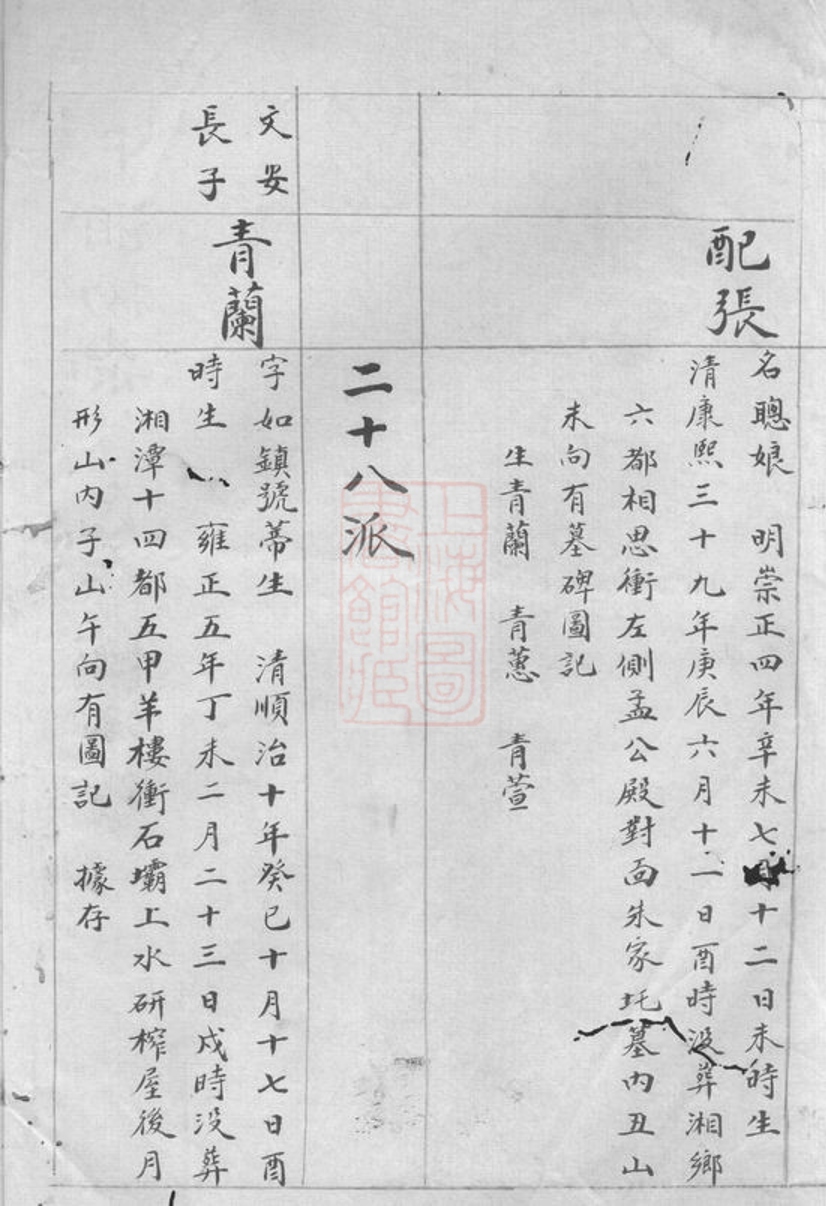 配張
名聰娘 明崇正四年辛未七月十二日未時生
清康熙三十九年庚辰六月十一日酉時沒葬湘鄉
六都相思衝左側孟公殿對面朱家坉墓内丑山
未向有墓碑圖記
生青蘭 青蕙 青萱
二十八派
文安
長子
青蘭
字如鎮號蒂生 清順治十年癸巳十月十七日酉
時生 雍正五年丁未二月二十三日戌時沒葬
湘潭十四都五甲羊樓衝石壩上水研榨屋後月
形山内子山午向有圖記 據存
上海圖
書館藏